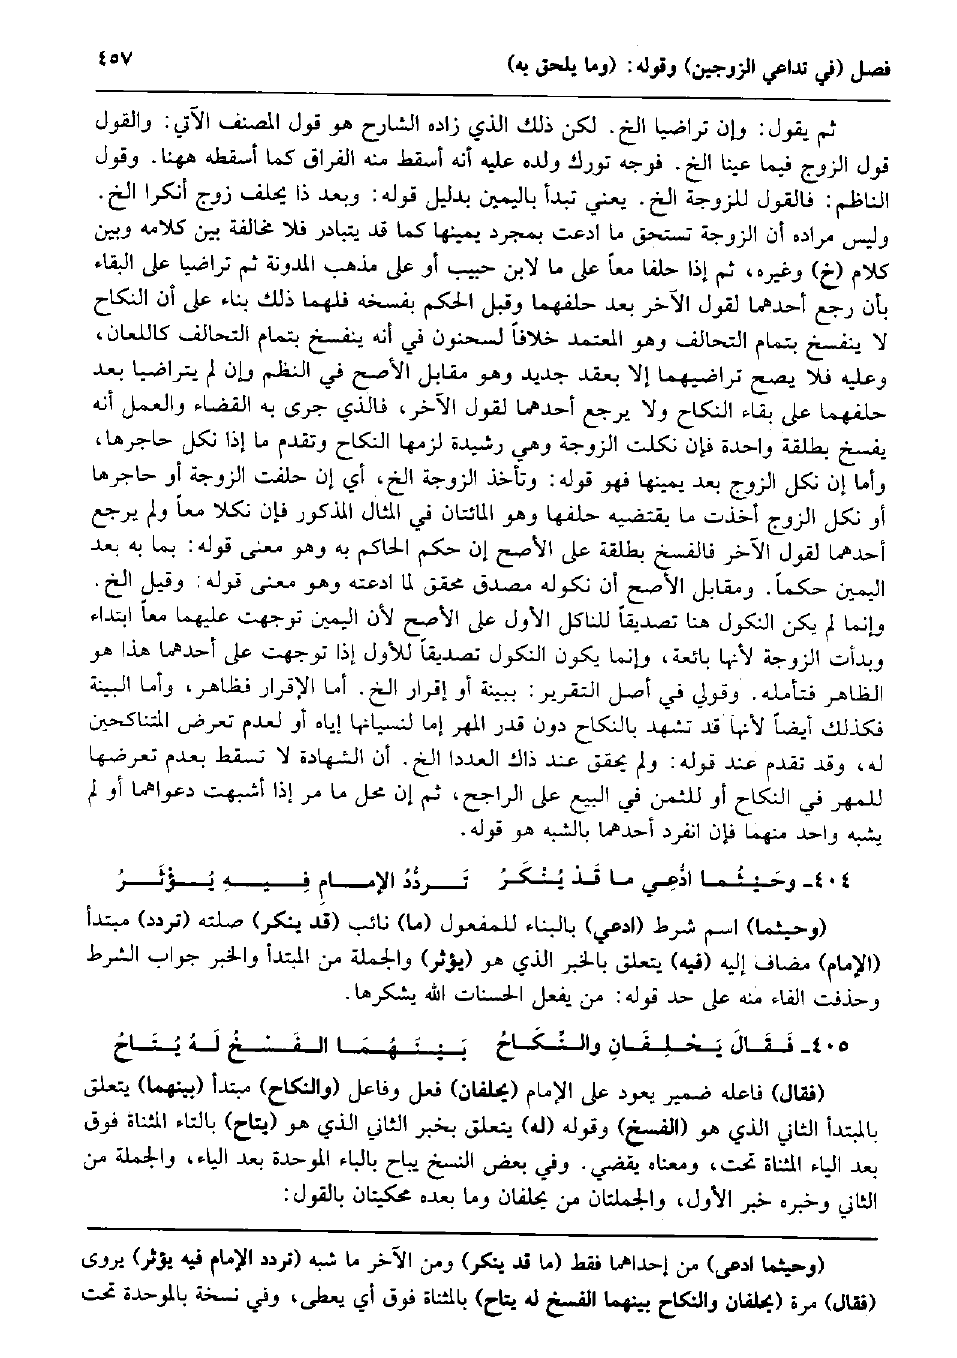 فصل (في تداعي الزوجين) وقوله: (وما يلحق به) ٤٥٧
ثم يقول: وإن تراضيا الخ. لكن ذلك الذي زاده الشارح هو قول المصنف الآتي: والقول
قول الزوج فيما عينا الخ. فوجه تورك ولده عليه أنه أسقط منه الفراق كما أسقطه ههنا. وقول
الناظم: فالقول للزوجة الخ. يعني تبدأ باليمين بدليل قوله: وبعد ذا يحلف زوج أنكرا الخ.
وليس مراده أن الزوجة تستحق ما ادعت بمجرد يمينها كما قد يتبادر فلا مخالفة بين كلامه وبين
كلام (خ) وغيره، ثم إذا حلفا معاً على ما لابن حبيب أو على مذهب المدونة ثم تراضيا على البقاء
بأن رجع أحدهما لقول الآخر بعد حلفهما وقبل الحكم بفسخه فلهما ذلك بناء على أن النكاح
لا ينفسخ بتمام التحالف وهو المعتمد خلافاً لسحنون في أنه ينفسخ بتمام التحالف كاللعان،
وعليه فلا يصح تراضيهما إلا بعقد جديد وهو مقابل الأصح في النظم وإن لم يتراضيا بعد
حلفهما على بقاء النكاح ولا يرجع أحدهما لقول الآخر، فالذي جرى به القضاء والعمل أنه
يفسخ بطلقة واحدة فإن نكلت الزوجة وهي رشيدة لزمها النكاح وتقدم ما إذا نكل حاجرها،
وأما إن نكل الزوج بعد يمينها فهو قوله: وتأخذ الزوجة الخ، أي إن حلفت الزوجة أو حاجرها
أو نكل الزوج أخذت ما يقتضيه حلفها وهو المائتان في المثال المذكور فإن نكلا معاً ولم يرجع
أحدهما لقول الآخر فالفسخ بطلقة على الأصح إن حكم الحاكم به وهو معنى قوله: بما به بعد
اليمين حكماً. ومقابل الأصح أن نكوله مصدق محقق لما ادعته وهو معنى قوله: وقيل الخ.
وإنما لم يكن النكول هنا تصديقاً للناكل الأول على الأصح لأن اليمين توجهت عليهما معاً ابتداء
وبدأت الزوجة لأنها بائعة، وإنما يكون النكول تصديقاً للأول إذا توجهت على أحدهما هذا هو
الظاهر فتأمله. وقولي في أصل التقرير: ببينة أو إقرار الخ. أما الإقرار فظاهر، وأما البينة
فكذلك أيضاً لأنها قد تشهد بالنكاح دون قدر المهر إما لنسيانها إياه أو لعدم تعرض المتناكحين
له، وقد تقدم عند قوله: ولم يحقق عند ذاك العددا الخ. أن الشهادة لا تسقط بعدم تعرضها
للمهر في النكاح أو للثمن في البيع على الراجح، ثم إن محل ما مر إذا أشبهت دعواهما أو لم
يشبه واحد منهما فإن انفرد أحدهما بالشبه هو قوله.
٤٠٤ـ وحَيْثُما ادُّعِي ما قَدْ يُنْكَرُ تَرَدُّدُ الإمامِ فِيهِ يُؤْثَرُ
(وحيثما) اسم شرط (ادعي) بالبناء للمفعول (ما) نائب (قد ينكر) صلته (تردد) مبتدأ
(الإمام) مضاف إليه (فيه) يتعلق بالخبر الذي هو (يؤثر) والجملة من المبتدأ والخبر جواب الشرط
وحذفت الفاء منه على حد قوله: من يفعل الحسنات الله يشكرها.
٤٠٥ـ فَقَالَ يَحْلِفَانِ والنِّكَاحُ بَيْنَهُمَا الفَسْخُ لَهُ يُتَاحُ
(فقال) فاعله ضمير يعود على الإمام (يحلفان) فعل وفاعل (والنكاح) مبتدأ (بينهما) يتعلق
بالمبتدأ الثاني الذي هو (الفسخ) وقوله (له) يتعلق بخبر الثاني الذي هو (يتاح) بالتاء المثناة فوق
بعد الياء المثناة تحت، ومعناه يقضي. وفي بعض النسخ يباح بالباء الموحدة بعد الياء، والجملة من
الثاني وخبره خبر الأول، والجملتان من يحلفان وما بعده محكيتان بالقول:
(وحيثما ادعى) من إحداهما فقط (ما قد ينكر) ومن الآخر ما شبه (تردد الإمام فيه يؤثر) يروى
(فقال) مرة (يحلفان والنكاح بينهما الفسخ له يتاح) بالمثناة فوق أي يعطى، وفي نسخة بالموحدة تحت